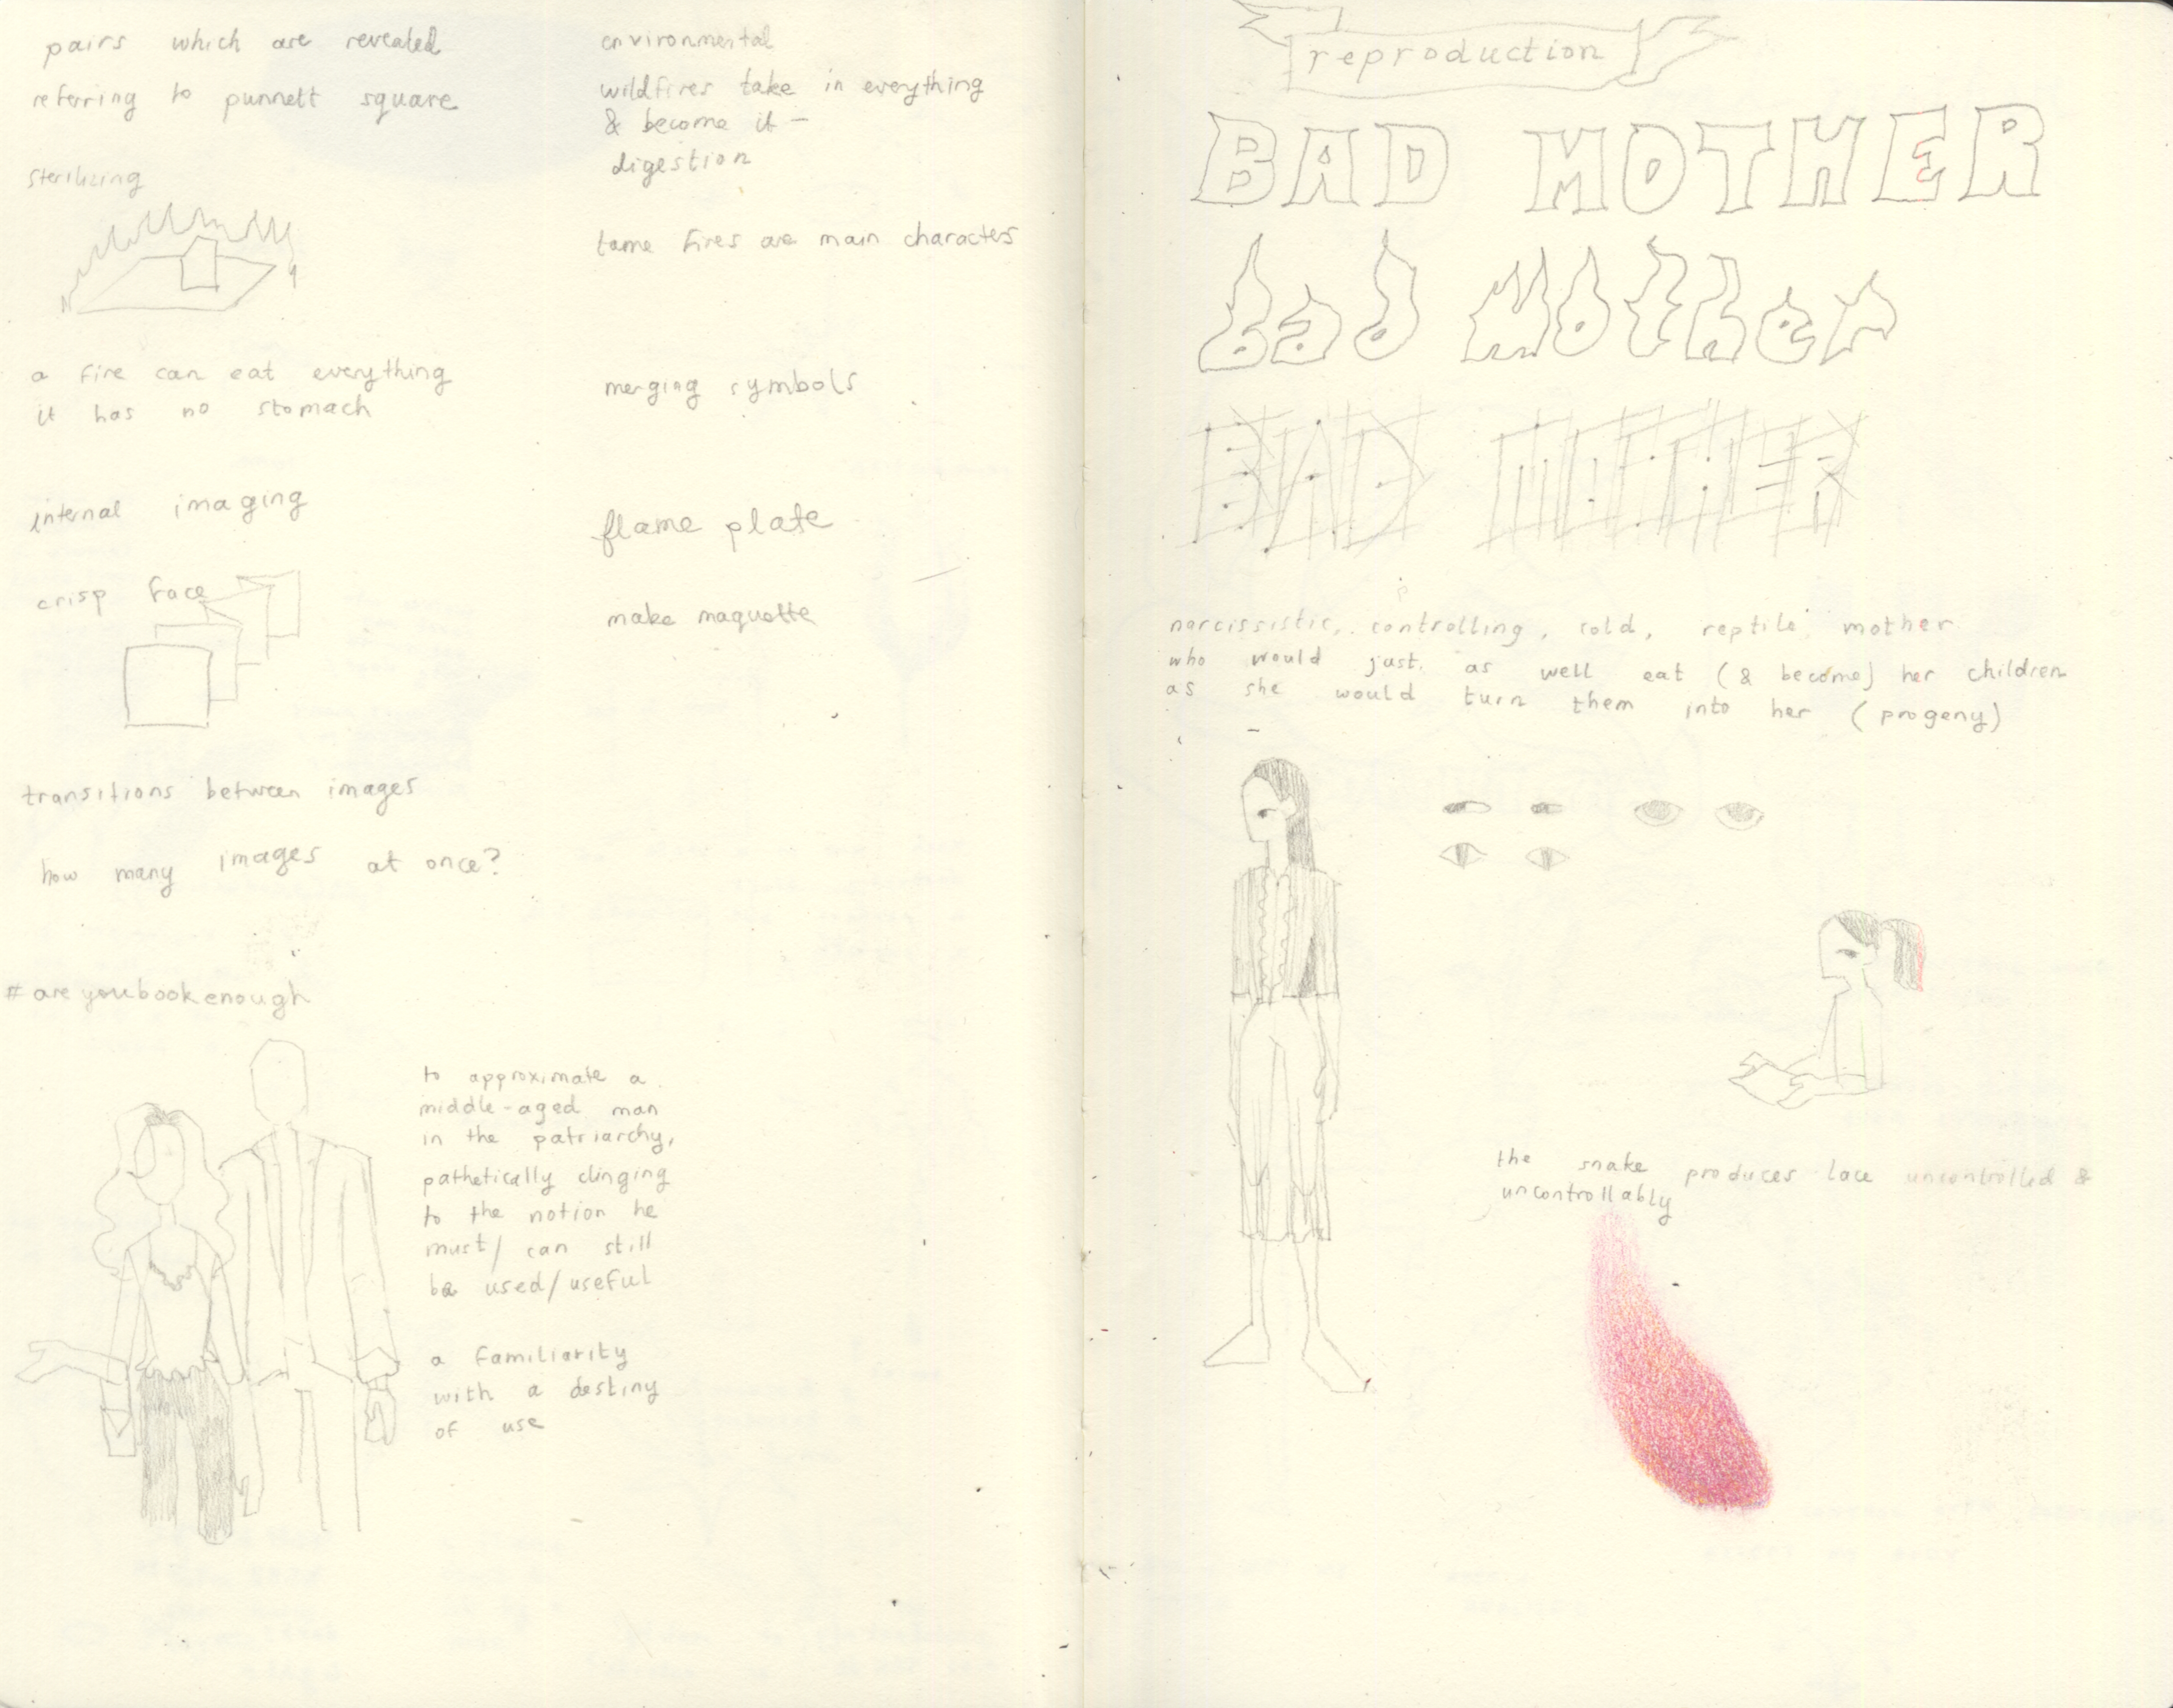 pairs which are revealed
referring to punnett square
sterilizing
a fire can eat everything
it has no stomach
internal imaging
crisp face
transitions between images
how many images at once?
#areyoubookenough
to approximate a
middle-aged man
in the patriarchy,
pathetically clinging
to the notion he
must/can still
be used/useful
a familiarity
with a destiny
of use
environmental
wildfires take in everything
& become it -
digestion
tame fires are main characters
merging symbols
flame plate
make maquette
reproduction
BAD MOTHER
bad Mother
BAD MOTHER
narcissistic, controlling, cold, reptile mother
who would just as well eat (& become) her children
as she would turn them into her (progeny)
the snake produces lace uncontrolled &
uncontrollably